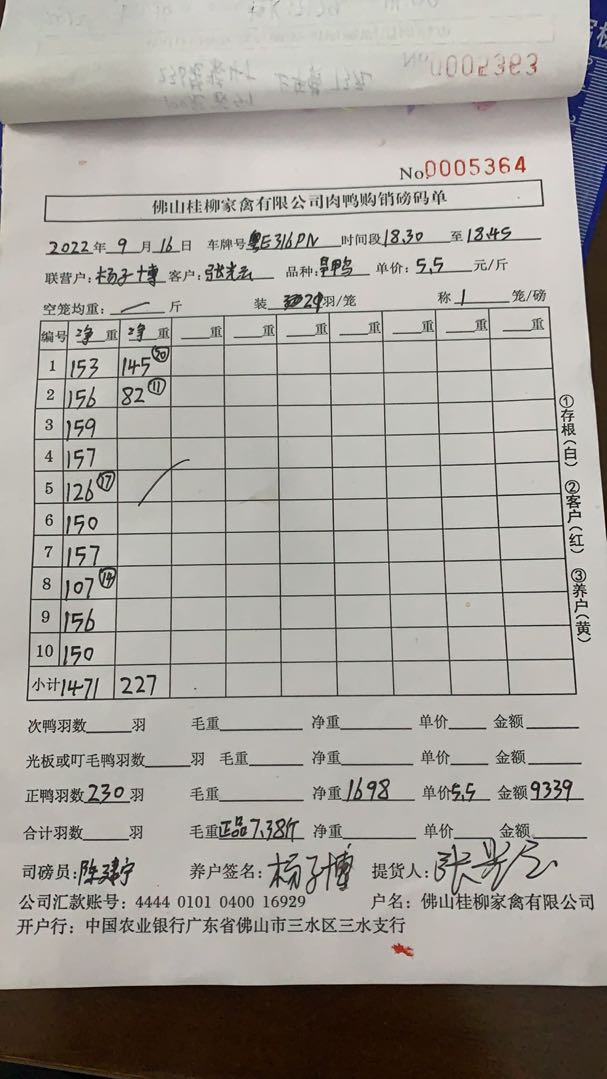 No 0005363
No. 0005364
佛山桂柳家禽有限公司肉鸭购销磅码单
2022年9月16日 车牌号粤E316PN 时间段18.30至18.45
联营户:杨子博 客户:张光云 品种:旱鸭 单价:5.5元/斤
空笼均重:/斤 装29羽/笼 称1笼/磅
编号 净重 净重 重 重 重 重 重 重 重
1 153 145⑳
2 156 82⑪
3 159
4 157
5 126⑰
6 150
7 157
8 107⑭
9 156
10 150
小计 1471 227
①存根(白) ②客户(红) ③养户(黄)
次鸭羽数 羽 毛重 净重 单价 金额
光板或叮毛鸭羽数 羽 毛重 净重 单价 金额
正鸭羽数230羽 毛重 净重1698 单价5.5 金额9339
合计羽数 羽 毛重正品7.38斤 净重 单价 金额
司磅员:陈建宁 养户签名:杨子博 提货人:张光云
公司汇款账号:4444 0101 0400 16929 户名:佛山桂柳家禽有限公司
开户行:中国农业银行广东省佛山市三水区三水支行